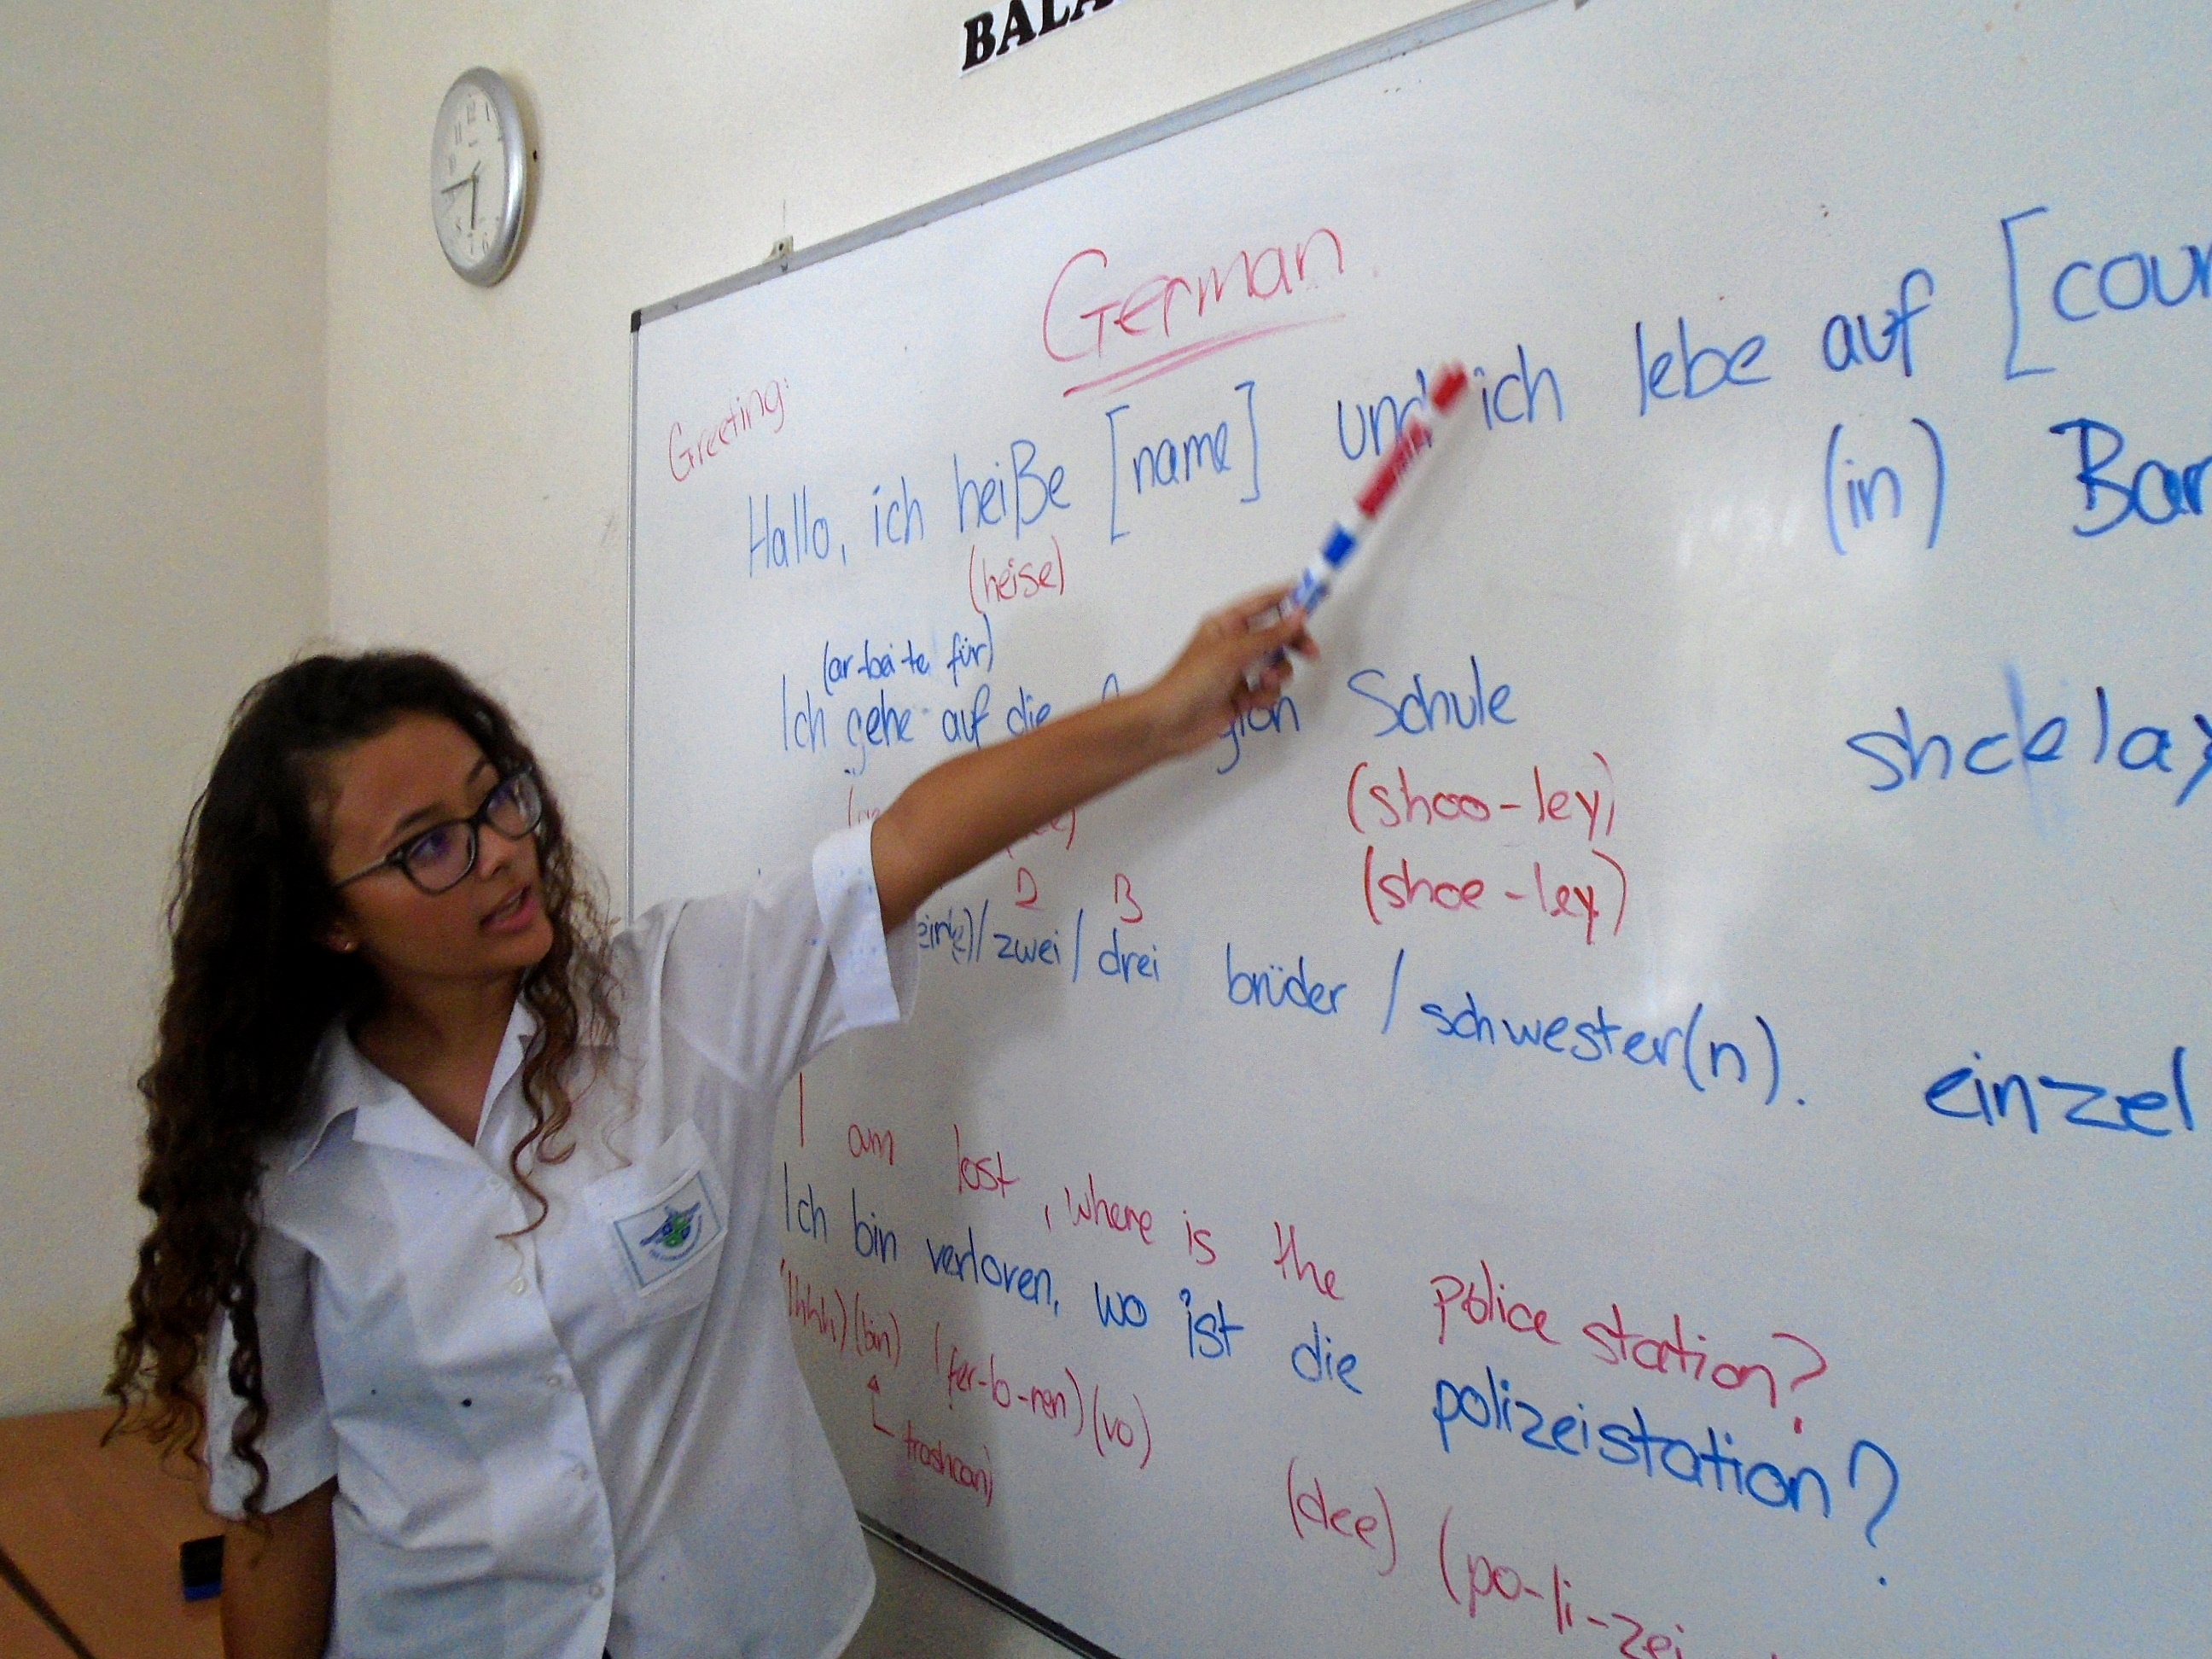 German
Greeting:
Hallo, ich heiße [name] und ich lebe auf [coun
(heise) (in) Bar
(arbeite für)
Ich gehe auf die Schule
(shoo-ley)
(shoe-ley)
D B
/ zwei / drei brüder / schwester(n). einzel
I am lost, where is the police station?
Ich bin verloren, wo ist die polizeistation?
(bin) (fer-lo-ren) (vo) (dee) (po-li-zei
trashcan)